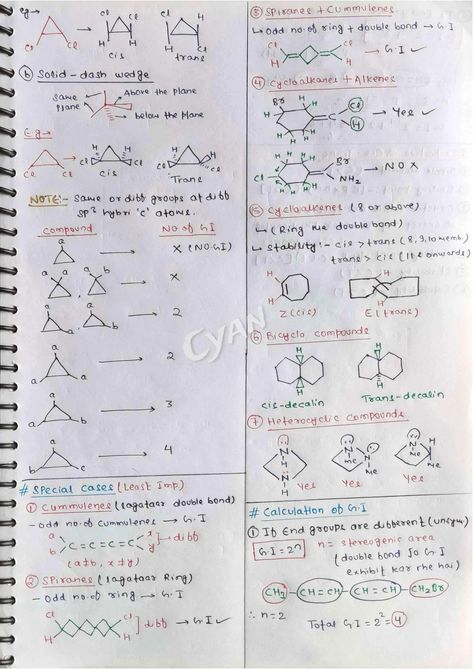 eg →
Cl Cl → Cl Cl H H cis Cl H H Cl trans
(b) Solid-dash wedge
same plane
Above the plane
below the plane
Eg →
Cl Cl → Cl H H Cl Cis Cl H H Cl Trans
NOTE:- Same or diff groups at diff
sp³ hybri 'c' atoms.
Compound NO of GI
a → X (NO.GI)
a a a b → X
a a a b → 2
a a a → 2
a a b → 3
a b c → 4
# Special Cases (Least Imp)
① Cummulenes (lagataar double bond)
- Odd no. of cummulenes → G.I
a b C=C=C=C x y } → diff
(a≠b, x≠y)
② Spiranes (lagataar Ring)
- Odd no. of ring → G.I
Cl H Cl H } diff → G.I ✓
③ Spiranes + Cummulenes
↳ Odd no. of ring + double bond → G.I
Cl H Cl H → G.I ✓
④ Cycloalkanes + Alkenes
Br H H H H H H =C Cl H → Yes ✓
Cl H Br NH₂ → NO X
⑤ Cycloalkenes (8 or above)
↳ (Ring me double bond)
↳ Stability:- cis > trans (8,9,10 memb.)
trans > cis (11 & onwards)
Z (cis) E (trans)
⑥ Bicyclo compounds
H H H H
cis-decalin Trans-decalin
⑦ Heterocyclic compounds
Yes Yes Yes
# Calculation of G.I
① If End groups are different (unsym)
G.I = 2ⁿ n = stereogenic area
(double bond jo G.I
exhibit kar rhe hai)
CH₃ CH=CH CH=CH CH₂Br
∴ n=2 Total G.I = 2² = ④
CYAN